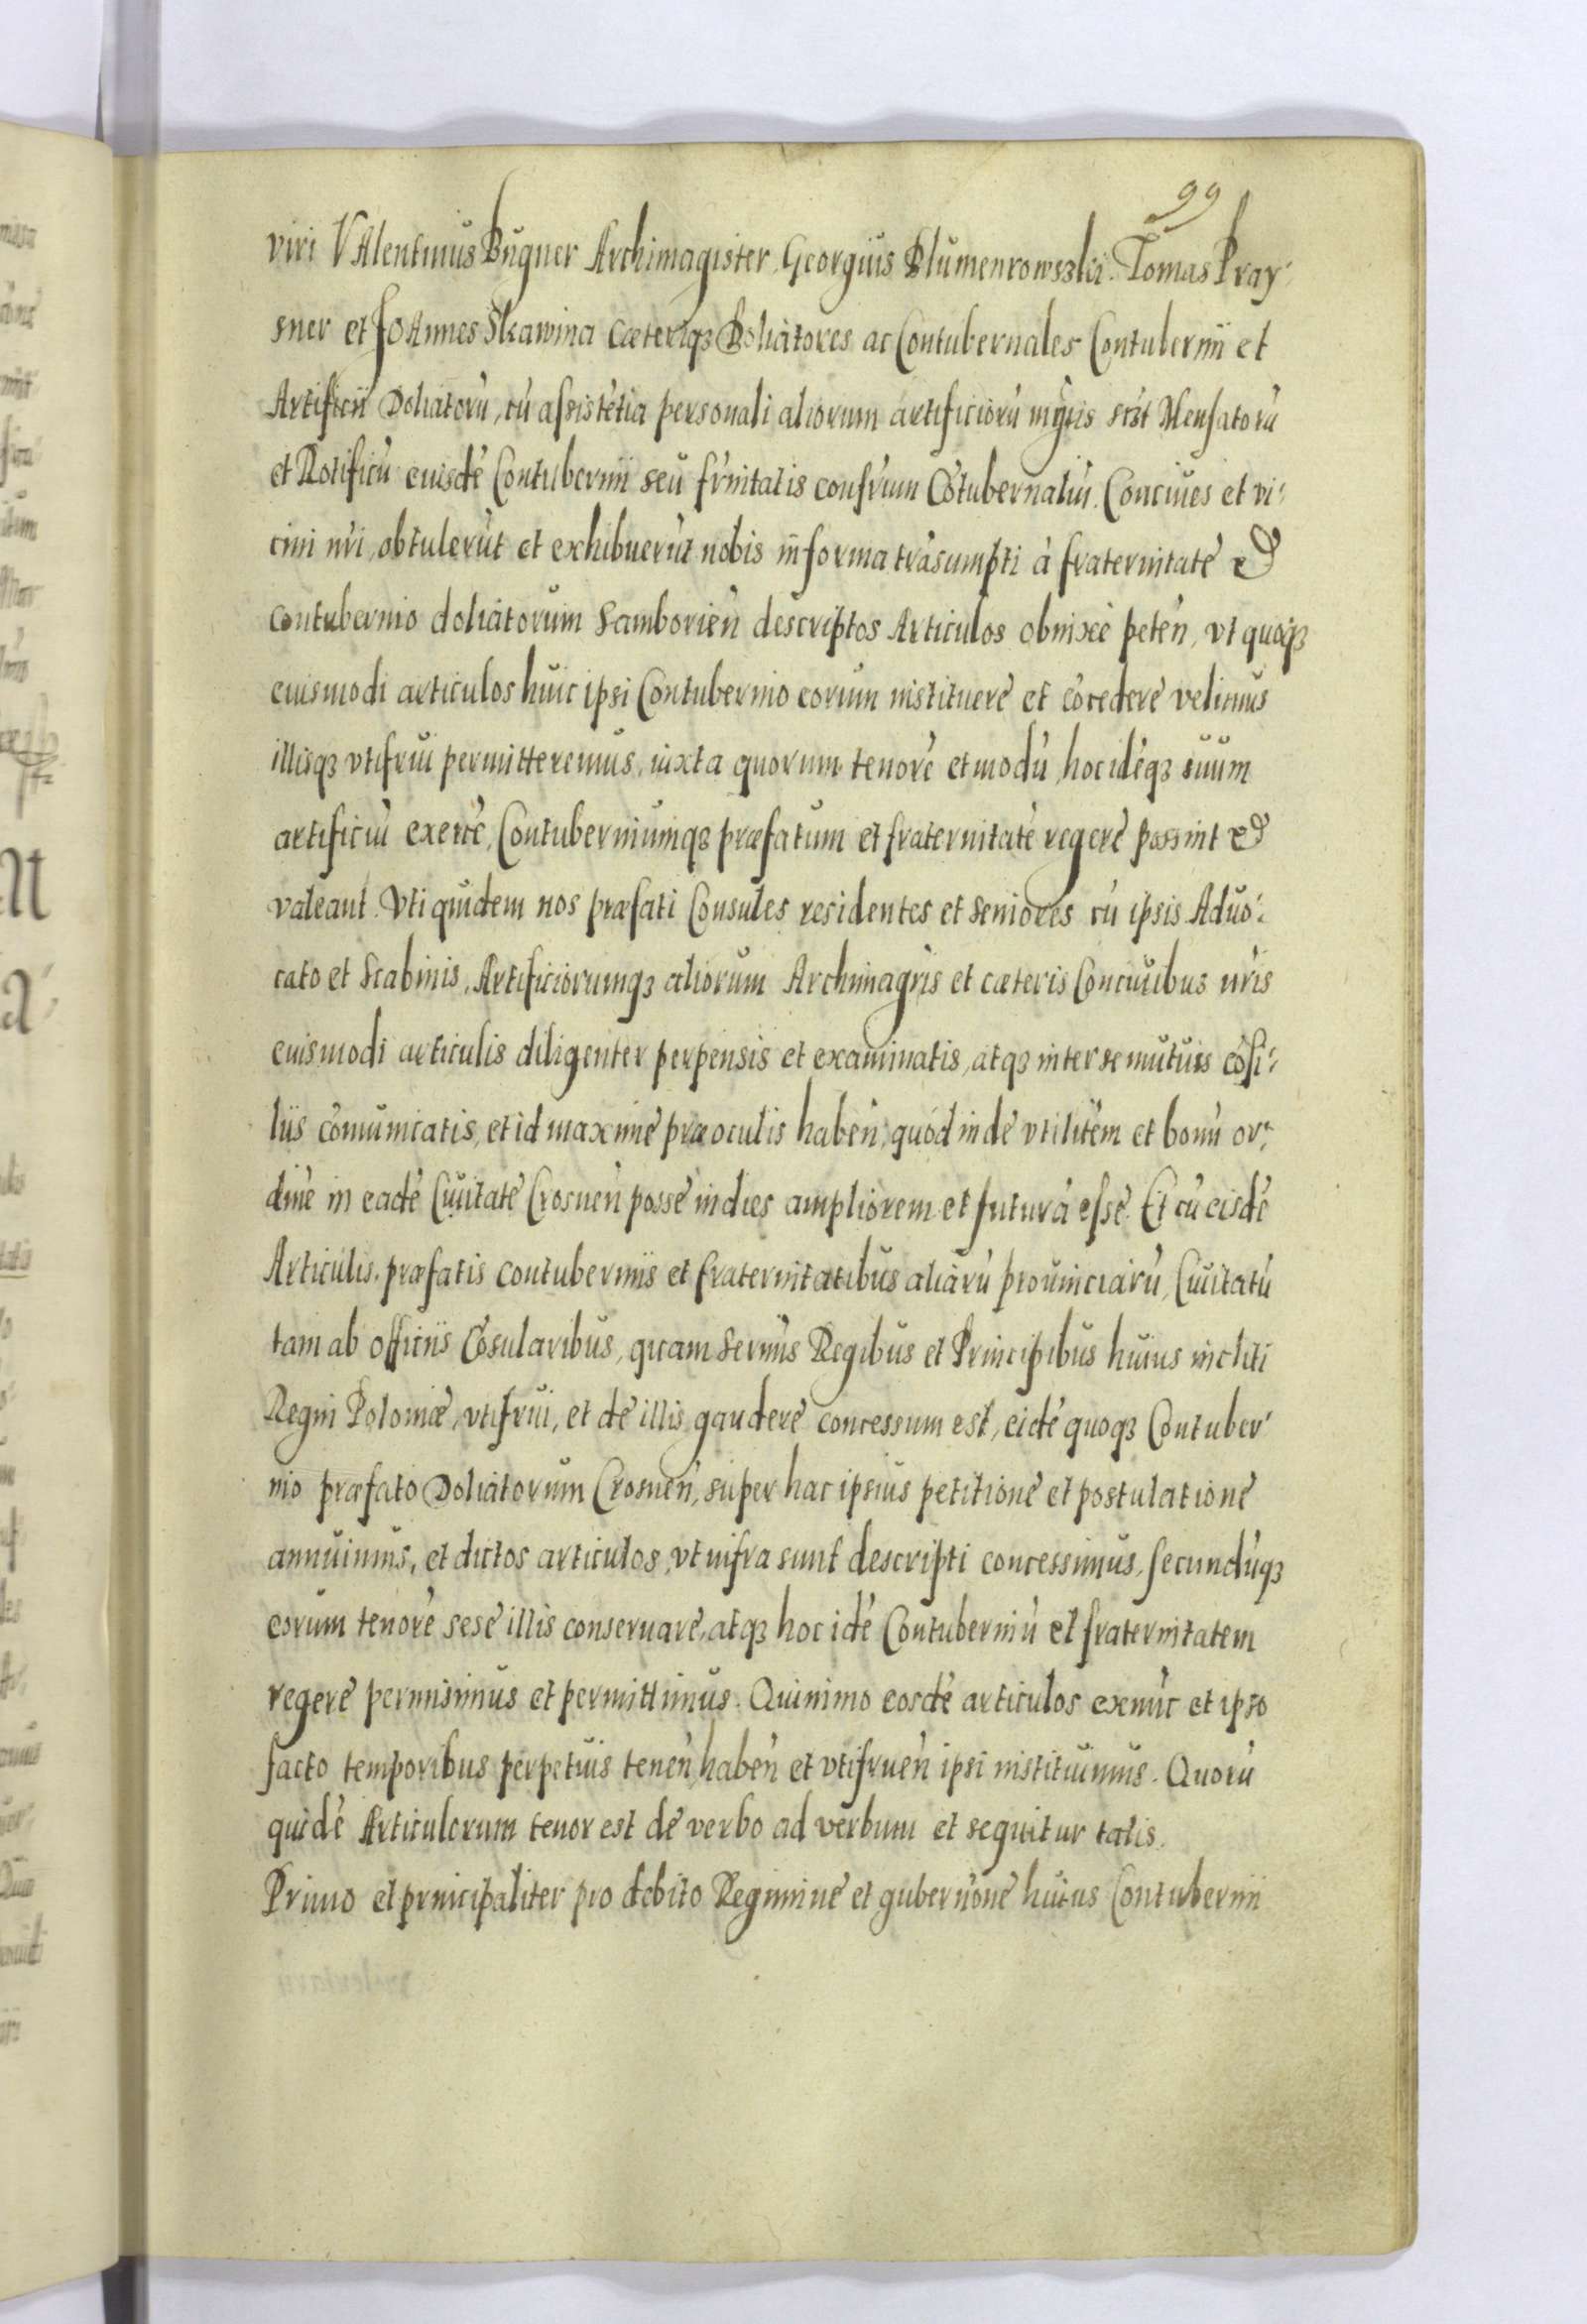 99
viri VAlentinus Bugner Archimagister, Georgius Blumenrowszki. Tomas Pray:
sner et JOAnnes Skawina Cæteriqꝫ Doliatores ac Contubernales Contubernii et
Artificii Doliatorū, cū assistētia personali aliorum artificiorū mgris scꝫt Mensatorū
et Rotificū eiusdē Contubernii seu frnitatis confrum Cōtubernaliū. Conciues et vi:
cini nri, obtulerūt et exhibuerūt nobis in forma trāsumpti à fraternitate et
contubernio doliatorum Samborien̄ descriptos Articulos obnixè peten̄, vt quoqꝫ
euismodi articulos huic ipsi Contubernio eorum instituere et cōcedere velimus
illisqꝫ vtifrui permitteremus, iuxta quorum tenorē et modū, hoc idēqꝫ suum
artificiū exercē, Contuberniumqꝫ præfatum et fraternitatē regere possint et
valeant. Vti quidem nos præfati Consules residentes et Seniores cū ipsis Aduo:
cato et Scabinis, Artificiorumqꝫ aliorum Archimagris et cæteris Conciuibus nris
euismodi articulis diligenter perpensis et examinatis, atqꝫ inter se mutuis cōsi:
liis cōmunicatis, et id maxime præ oculis haben̄, quód inde vtilitēm et bonū or:
dinē in eadē Ciuitate Crosnen̄ posse indies ampliorem et futurā esse. Et cū eisdē
Articulis, præfatis contuberniis et fraternitatibus aliarū prouinciarū, Ciuitatū
tam ab officiis Cōsularibus, quam Sermis Regibus et Principibus huius incliti
Regni Poloniæ, vtifrui, et de illis gaudere concessum est, eidē quoqꝫ Contuber:
nio præfato Doliatorum Crosnen̄, super hac ipsius petitione et postulatione
annuimus, et dictos articulos, vt infra sunt descripti concessimus, secundūqꝫ
eorum tenorē sese illis conseruare, atqꝫ hoc idē Contuberniū et fraternitatem
regere permisimus et permittimus. Quinimo eosdē articulos exnūc et ipso
facto temporibus perpetuis tenen̄ haben̄ et vtifruen̄ ipsi instituimus. Quorū
quidē Articulorum tenor est de verbo ad verbum et sequitur talis.
Primo et principaliter pro debito Regimine et gubernōne huius Contubernii